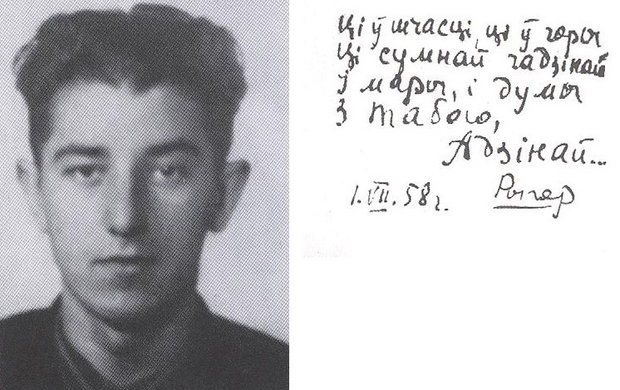 Ці ў шчасці, ці ў горы
Ці сумнай гадзінай
І мары, і думы
З табою,
Адзінай...
1.VII.58 г.